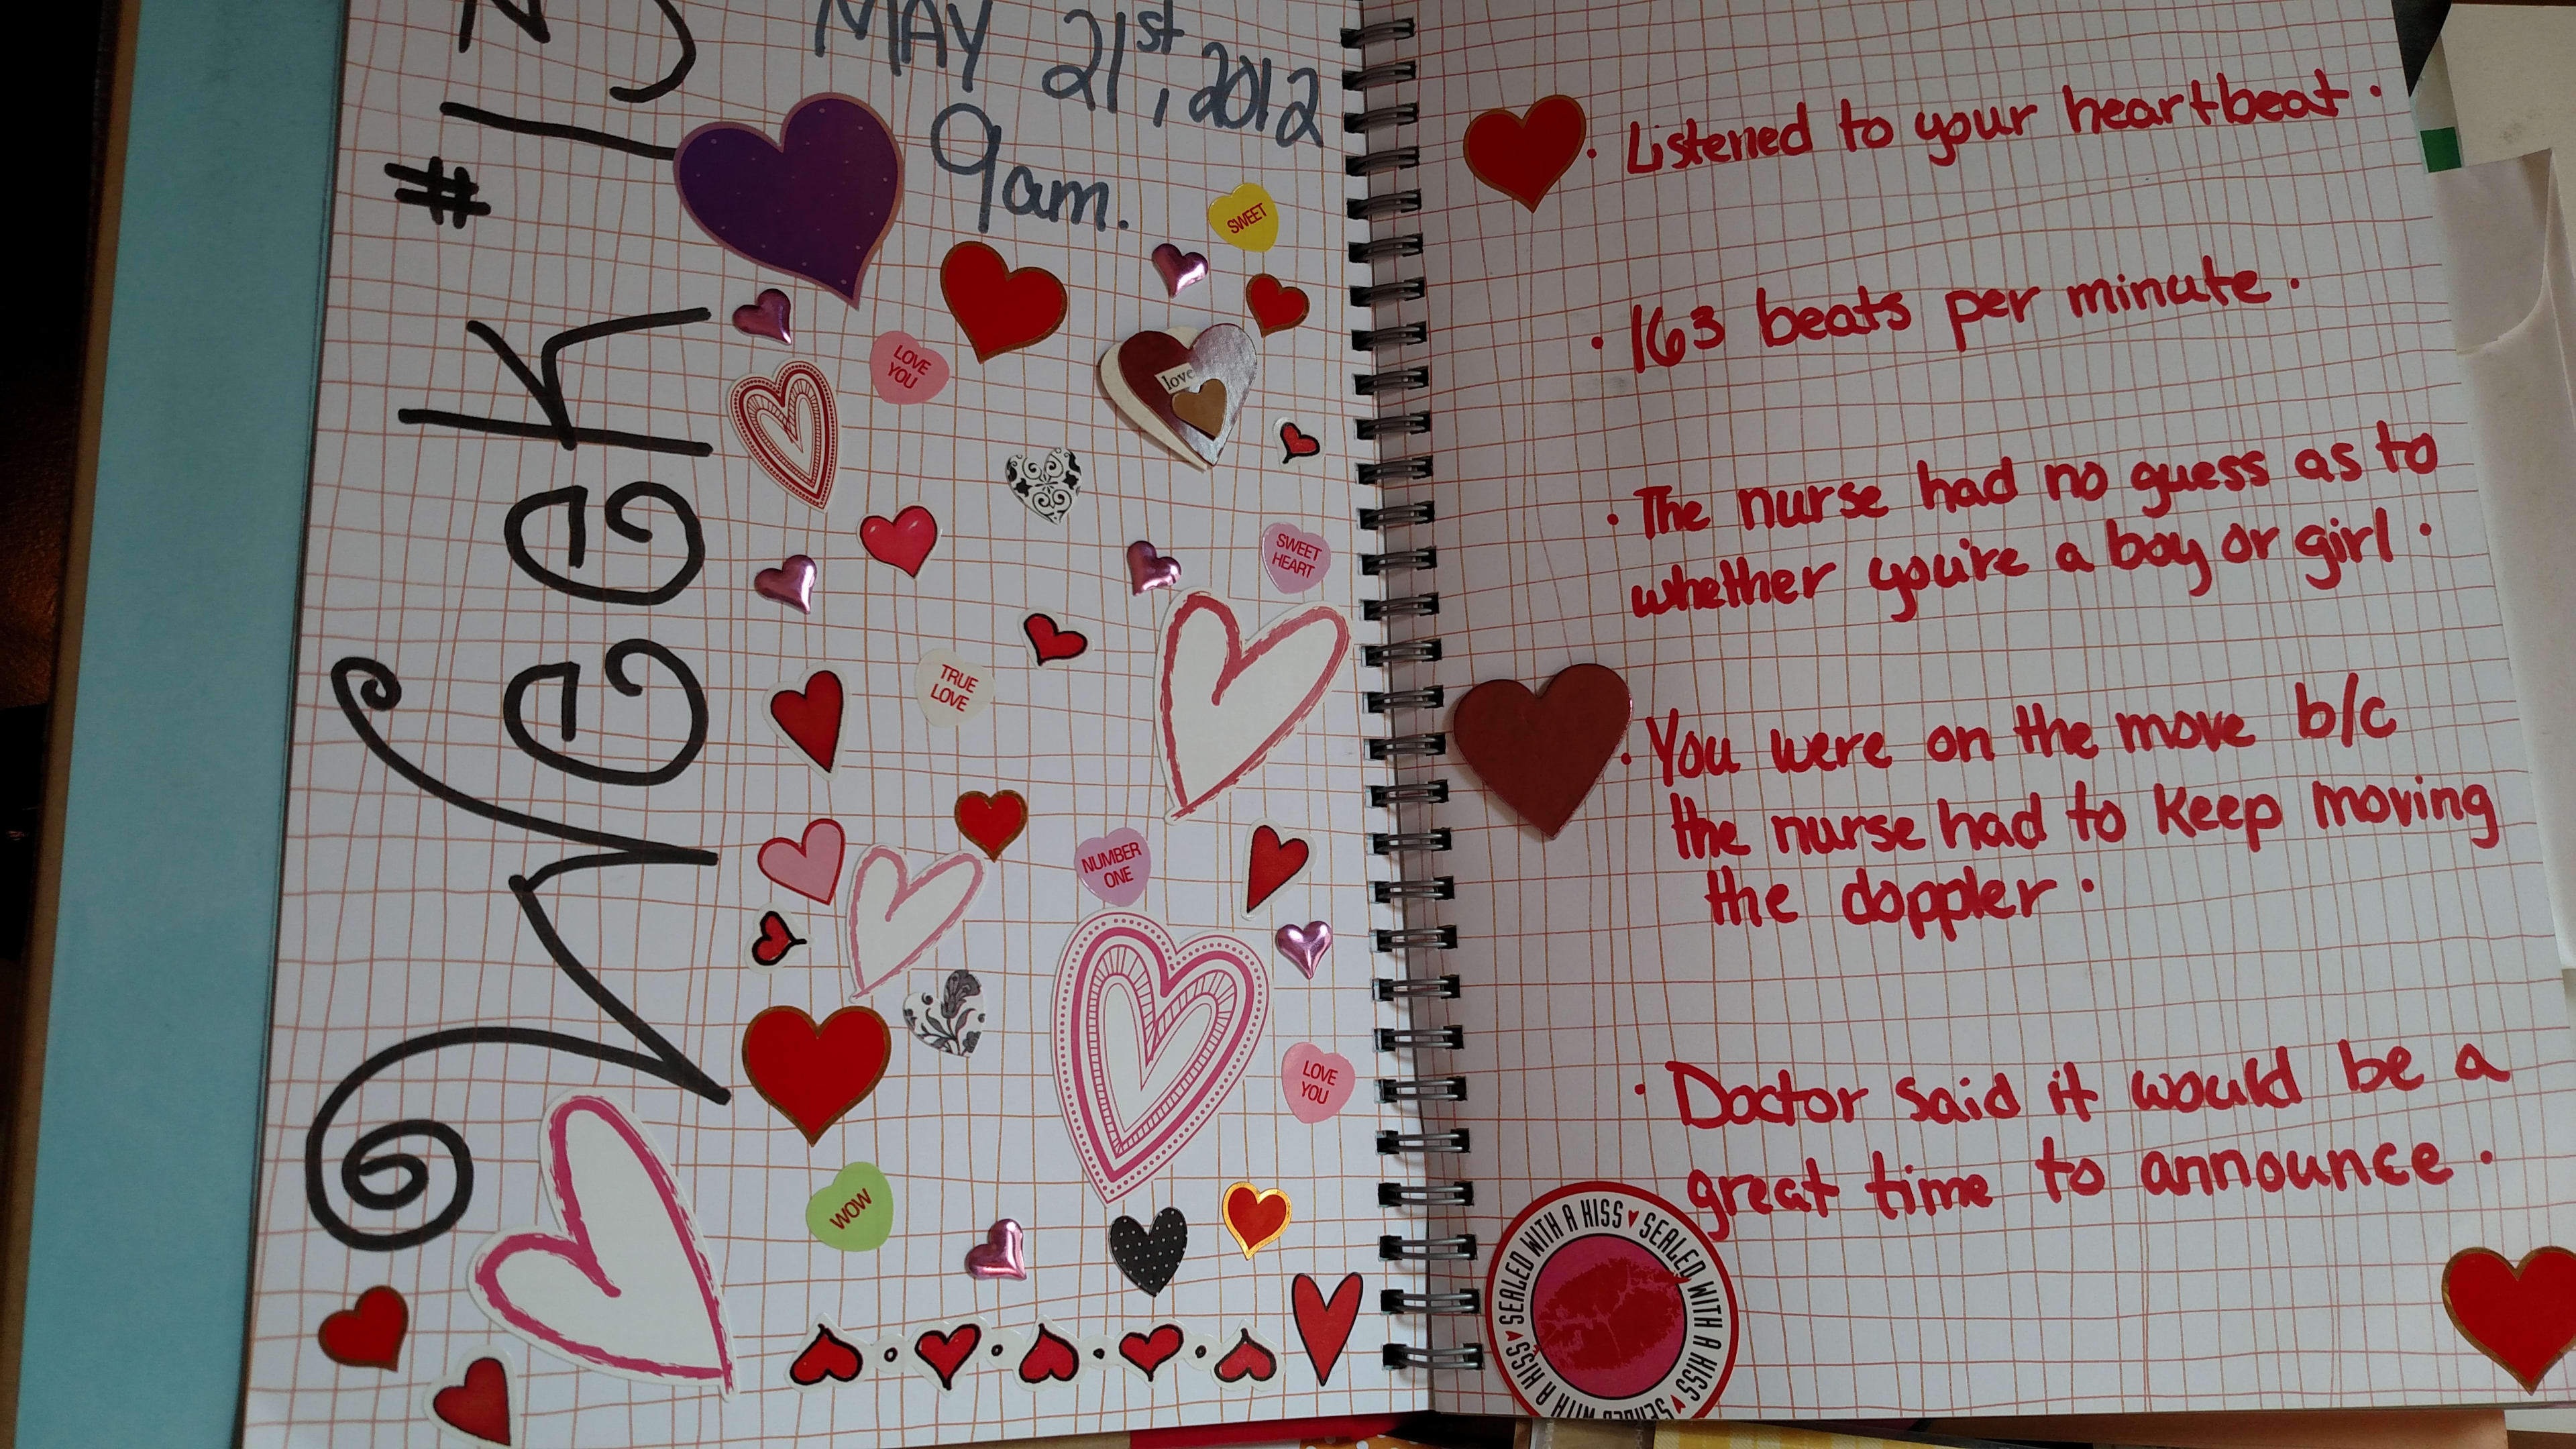 Week
MAY 21st, 2012
9am.
SWEET
LOVE
YOU
love
SWEET
HEART
TRUE
LOVE
NUMBER
ONE
LOVE
YOU
WOW
· Listened to your heartbeat.
· 163 beats per minute.
· The nurse had no guess as to
whether you're a boy or girl.
· You were on the move b/c
the nurse had to keep moving
the doppler.
· Doctor said it would be a
great time to announce.
SEALED WITH A KISS ♥ SEALED WITH A KISS ♥ SEALED WITH A KISS ♥